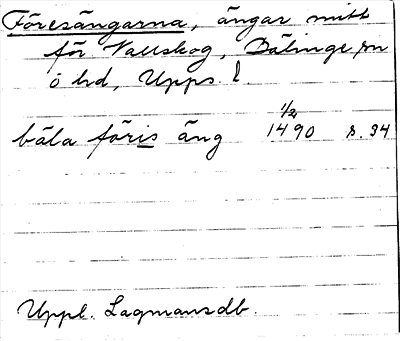 Föresängarna, ängar mitt
för Vallskog, Bälinge sn
ö hd, Upps. l.
bäla föris äng 1/2 1490 s. 34
Uppl. Lagmansdb.